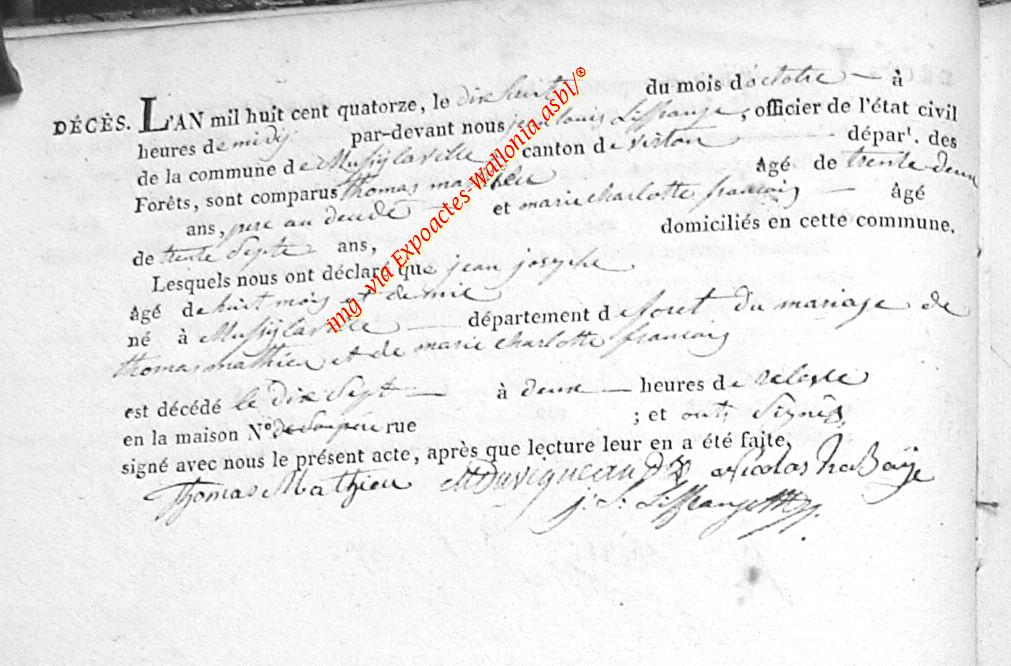 DÉCÈS. L'AN mil huit cent quatorze, le dix huit du mois d'octobre — à
heures de midy par-devant nous jean louis Liffrange, officier de l'état civil
de la commune de Mussy la ville canton de virton — départ. des
Forêts, sont comparus thomas mathieu âgé de trente deux
ans, pere au decedé et marie charlotte francois — âgé
de trente Septe ans, domiciliés en cette commune.
Lesquels nous ont déclaré que jean josephe
âgé de huit mois et demie
né à Mussy la ville — département de foret du mariage de
thomas mathieu et de marie charlotte francois
est décédé le dix Sept — à deux — heures de
en la maison N° de Son pere rue ; et ont Signés,
signé avec nous le présent acte, après que lecture leur en a été faite,
Thomas Mathieu Nicolas
j. L. Liffrange
img via Expoactes-Wallonia.asbl/®